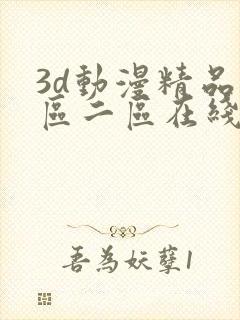 3d動漫精品
區二區在綫
吾為妖孽1